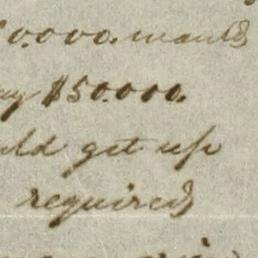 0.000. wants
$50.000.
ld get up
required